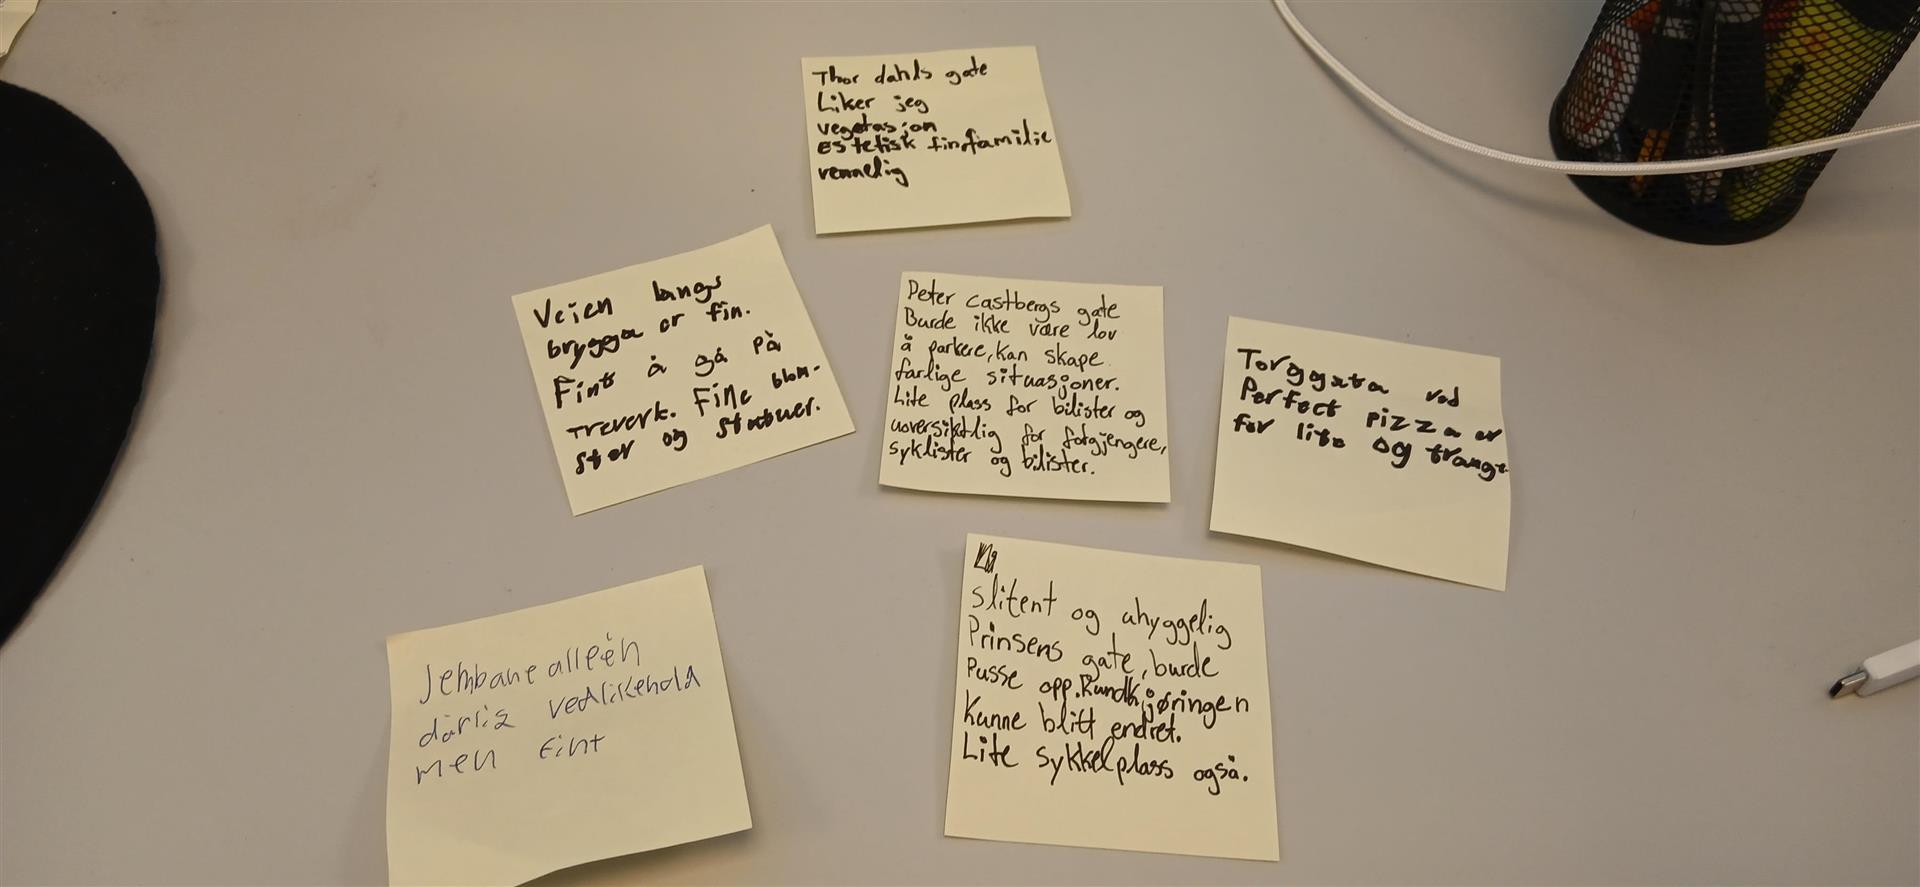 Thor dahls gate
Liker jeg
vegetasjon
estetisk fin familie
vennelig
Veien langs
brygga er fin.
Fint å gå på
treverk. Fine blom-
ster og statuer.
Peter Castbergs gate
Burde ikke være lov
å parkere, kan skape
farlige situasjoner.
Lite plass for bilister og
uoversiktlig for fotgjengere,
syklister og bilister.
Torggata ved
Perfect pizza er
for lite og trangt
Jernbanealleén
dårlig vedlikehold
men fint
slitent og uhyggelig
Prinsens gate, burde
Pusse opp. Rundkjøringen
Kunne blitt endret.
Lite sykkelplass også.